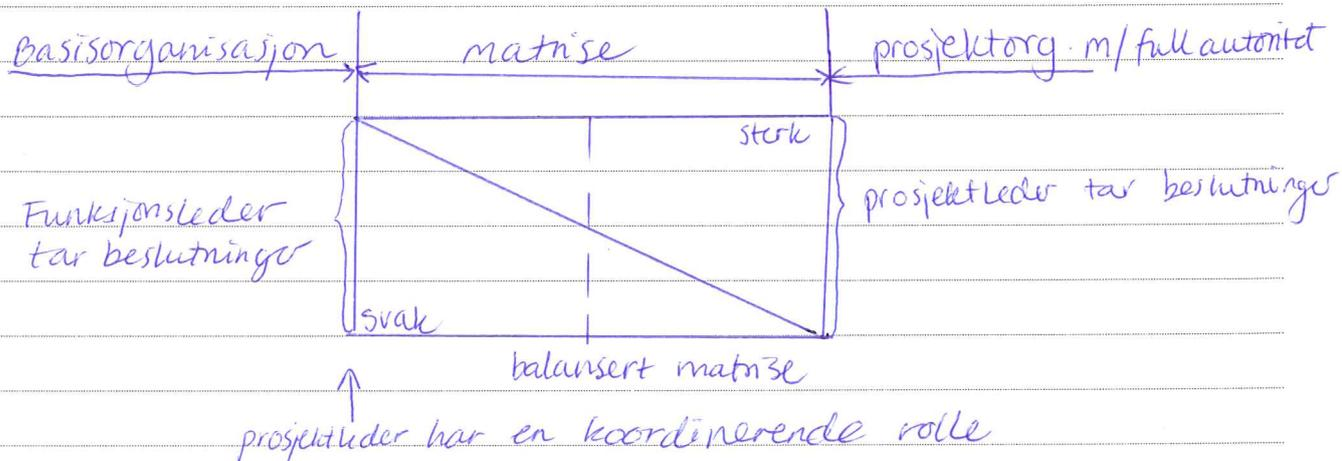 Basisorganisasjon
matrise
prosjektorg. m/ full autoritet
sterk
Funksjonsleder
tar beslutninger
prosjektleder tar beslutninger
svak
balansert matrise
prosjektleder har en koordinerende rolle